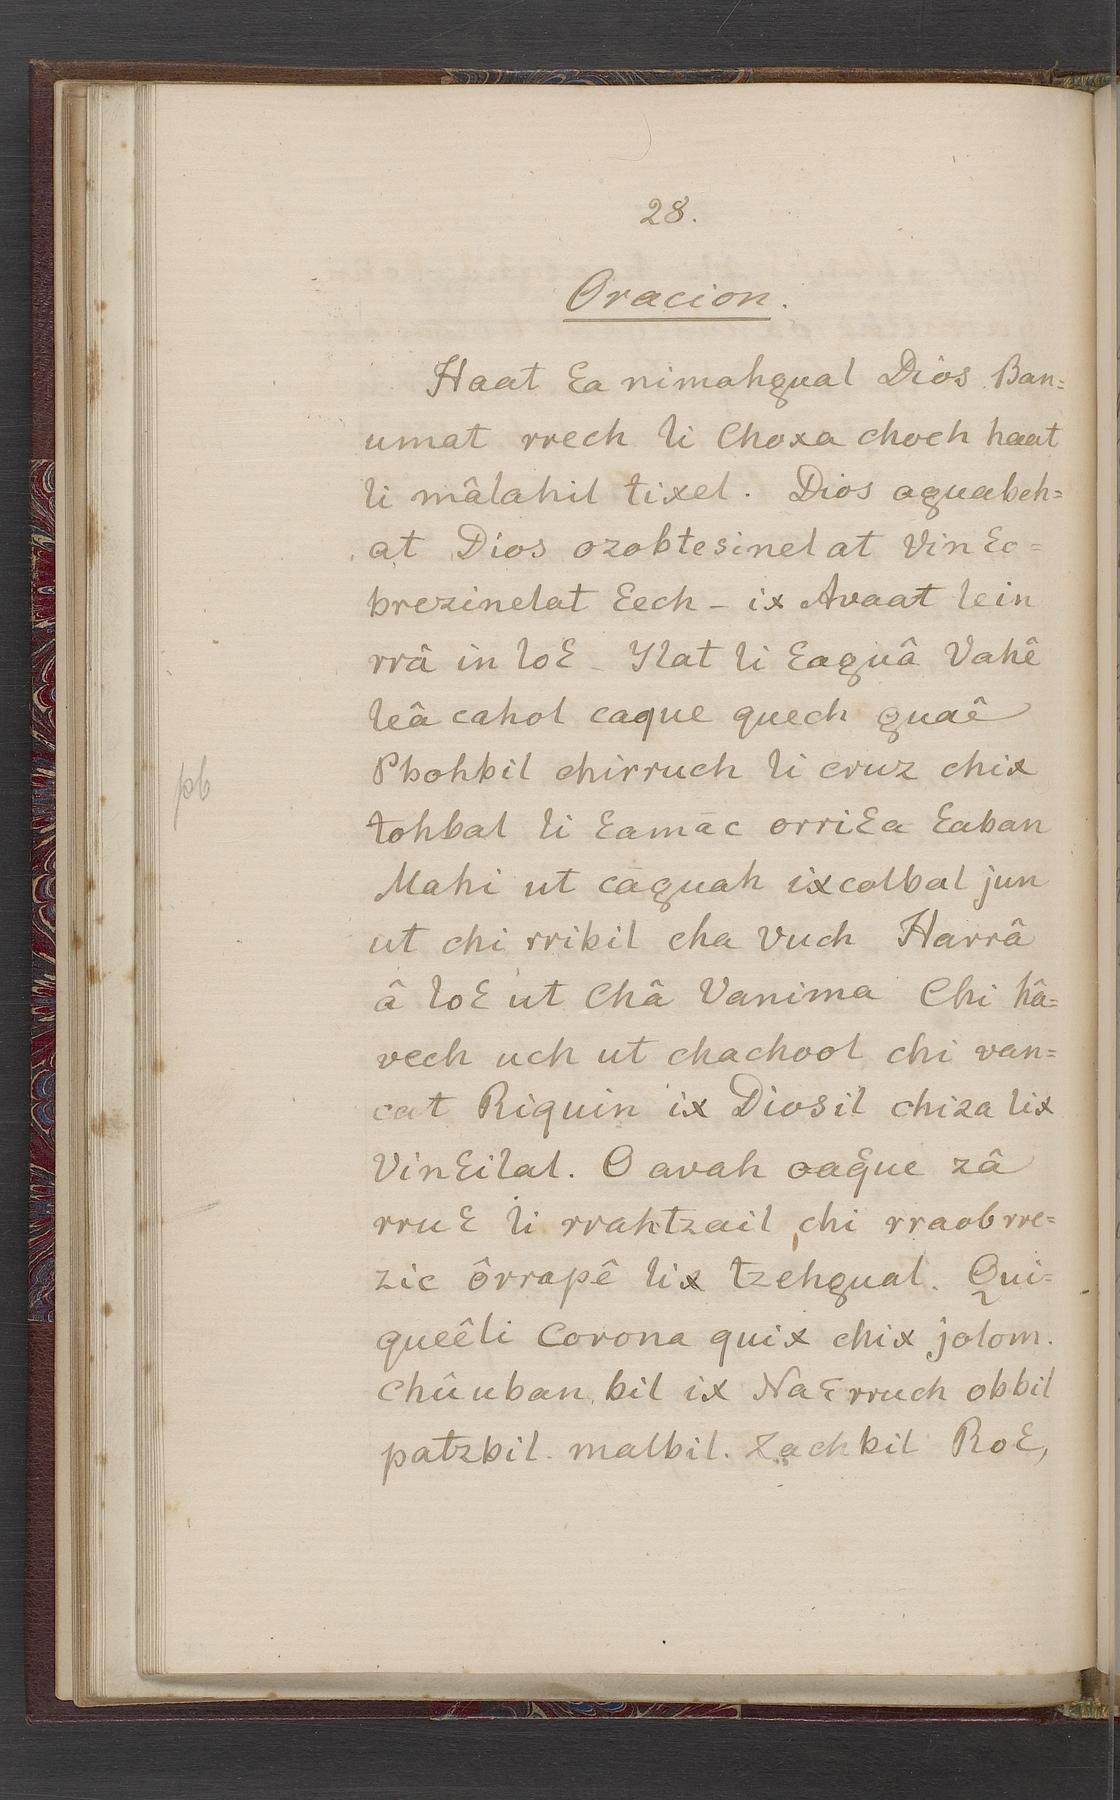 28.
Oracion.
Haat Ɛa nimahgual Dios Ban=
umat rrech li Choxa choch haat
li mâlahil tixel. Dios aguabeh=
at Dios ozobtesinelat VinƐo=
brezinelat Ɛech - ix Avaat lein
rrâ in loƐ - Ylat li Ɛaguâ Vahê
leâ cahol caque quech guaê
Phohbil chirruch li cruz chix
pb
tohbal li Ɛamāc orriƐa Ɛaban
Mahi ut cāguah ixcolbal jun
ut chi rribil cha Vuch Harrâ
â loƐ ut Châ Vanima Chi hâ=
vech uch ut chachool chi van=
cat Riquin ix Diosil chiza lix
VinƐilal. O avah oaƐue zâ
rruƐ li rrahtzail chi rraobrre=
zic ôrrapê lix tzehgual. Qui=
queêli Corona quix chix jolom.
Chûuban bil ix NaƐrruch obbil
patzbil. malbil. Zachbil RoƐ,